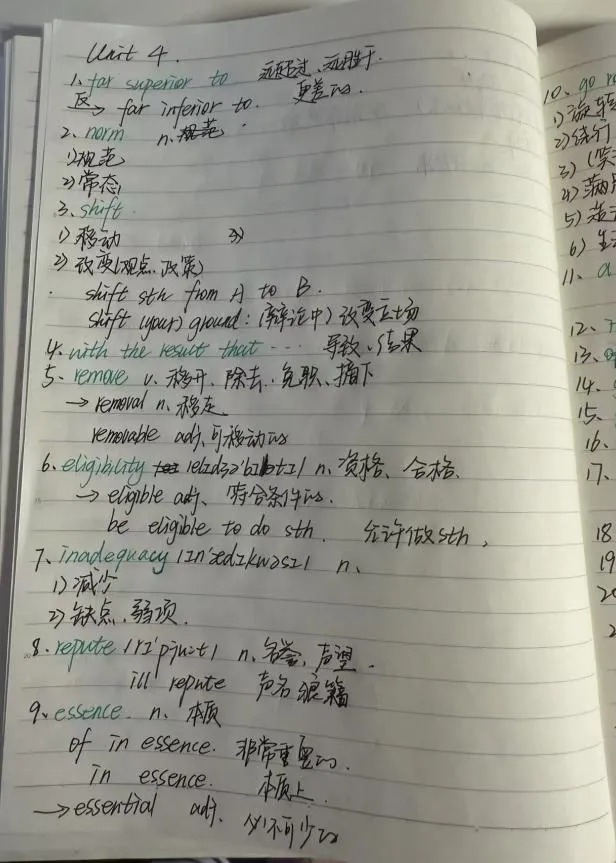 Unit 4.
1. far superior to 远超过、远胜于.
反→ far inferior to. 更差的.
2. norm n. 规范.
1) 规范
2) 常态
3. shift.
1) 移动 3)
2) 改变(观点、政策)
shift sth from A to B.
shift (your) ground: (辩论中) 改变立场
4. with the result that ... 导致、结果
5. remove v. 移开、除去、免职、摘下
→ removal n. 移走
removable adj. 可移动的
6. eligibility /elɪdʒə'bɪlətɪ/ n. 资格、合格.
→ eligible adj. 符合条件的.
be eligible to do sth. 允许做sth.
7. inadequacy /ɪn'ædɪkwəsɪ/ n.
1) 减少
2) 缺点、弱项.
8. repute /rɪ'pjuːt/ n. 名誉、声望.
ill repute 声名狼籍
9. essence. n. 本质
of in essence. 非常重要的.
in essence. 本质上.
→ essential adj. 必不可少的
10. go
1)
2) 绕行
3)
4)
5)
6)
11. a
12.
13.
14.
15.
16.
17.
18
19